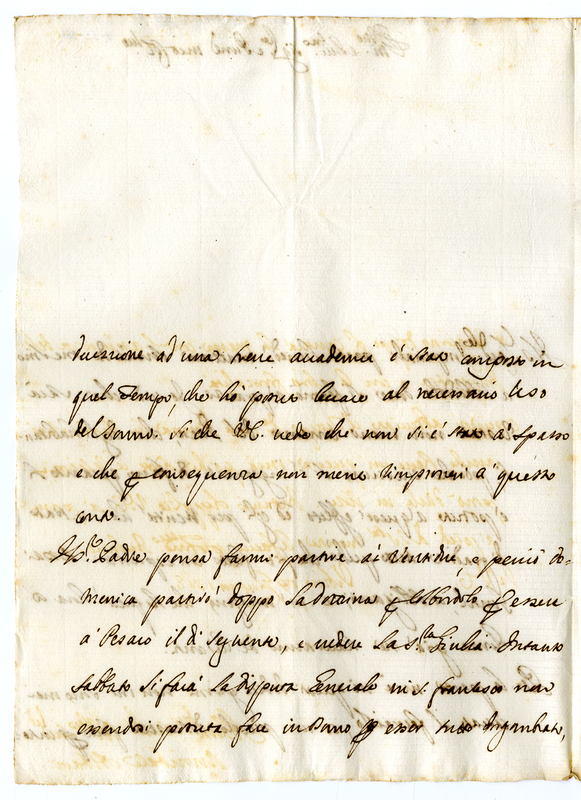 duzzione ad'una breve accademia è stato composto in
quel Tempo, che hò potuto levare al necessario Uso
del Sonno. Si che V.S. vede che non si è stato à Spasso
e che p conseguenza non merito rimproveri a' questo
conto.
Il S.r Padre pensa farmi partire ai Ventidue, e perciò Do-
menica partirò doppo la dottrina p Colbordolo p essere
à Pesaro il dì seguente, e vedere la S.ra Giulia. Intanto
sabbato si farà la disputa Generale in S. Francesco non
essendosi potuta fare in Domo p esser tutto Ingombrato,